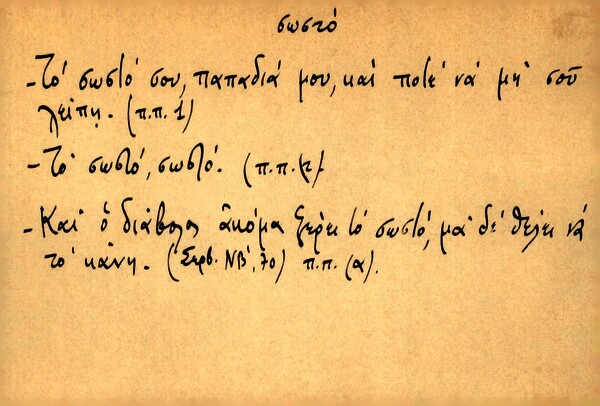 σωστό
- Τό σωστό σου, παπαδιά μου, καί ποτέ νά μή σοῦ
λείπῃ. (π.π. 1)
- Τό σωστό, σωστό. (π.π.
- Καί ὁ διάβολος ἀκόμα ξέρει τό σωστό, μά δέ θέλει νά
τό κάνῃ. (Σερβ. ΝΒ', 70) π.π. (α).